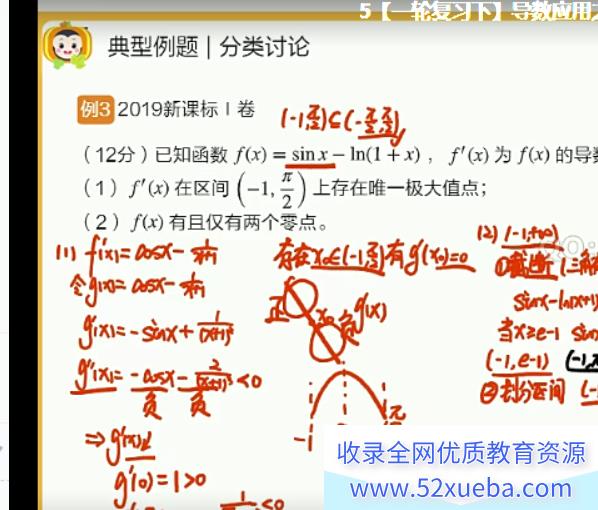 5【一轮复习下】导数应用
典型例题 | 分类讨论
例3 2019新课标Ⅰ卷
(-1,π/2)⊆(-π/2,π/2)
（12分）已知函数 f(x) = sin x − ln(1 + x) ，f′(x) 为 f(x) 的导
（1）f′(x) 在区间 (−1, π/2) 上存在唯一极大值点；
（2）f(x) 有且仅有两个零点。
(1) f'(x)=cosx-1/(x+1)
令g(x)=cosx-1/(x+1)
g'(x)=-sinx+1/(x+1)²
g''(x)=-cosx-2/(x+1)³<0
负 负
⇒g'(x)↓
g'(0)=1>0
存在x₀∈(-1,π/2)有g'(x₀)=0
正 x₀ 负 g'(x)
-1 π/2
(2) (-1,+∞)
①截断
sinx-ln(x+1)
当x≥e-1 sin
(-1,e-1)
②划分区间
收录全网优质教育资源
www.52xueba.com